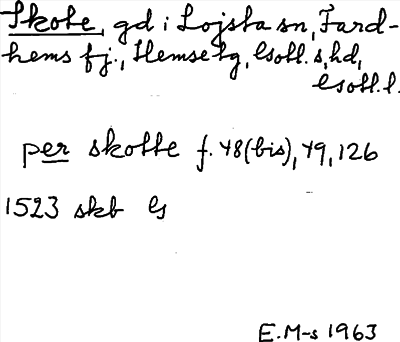 Skote, gd i Lojsta sn, Fard-
hems fj., Hemse tg, Gotl. s, hd,
Gotl. l.
per skotte f. 48 (bis), 49, 126
1523 skb G
E. M-s 1963